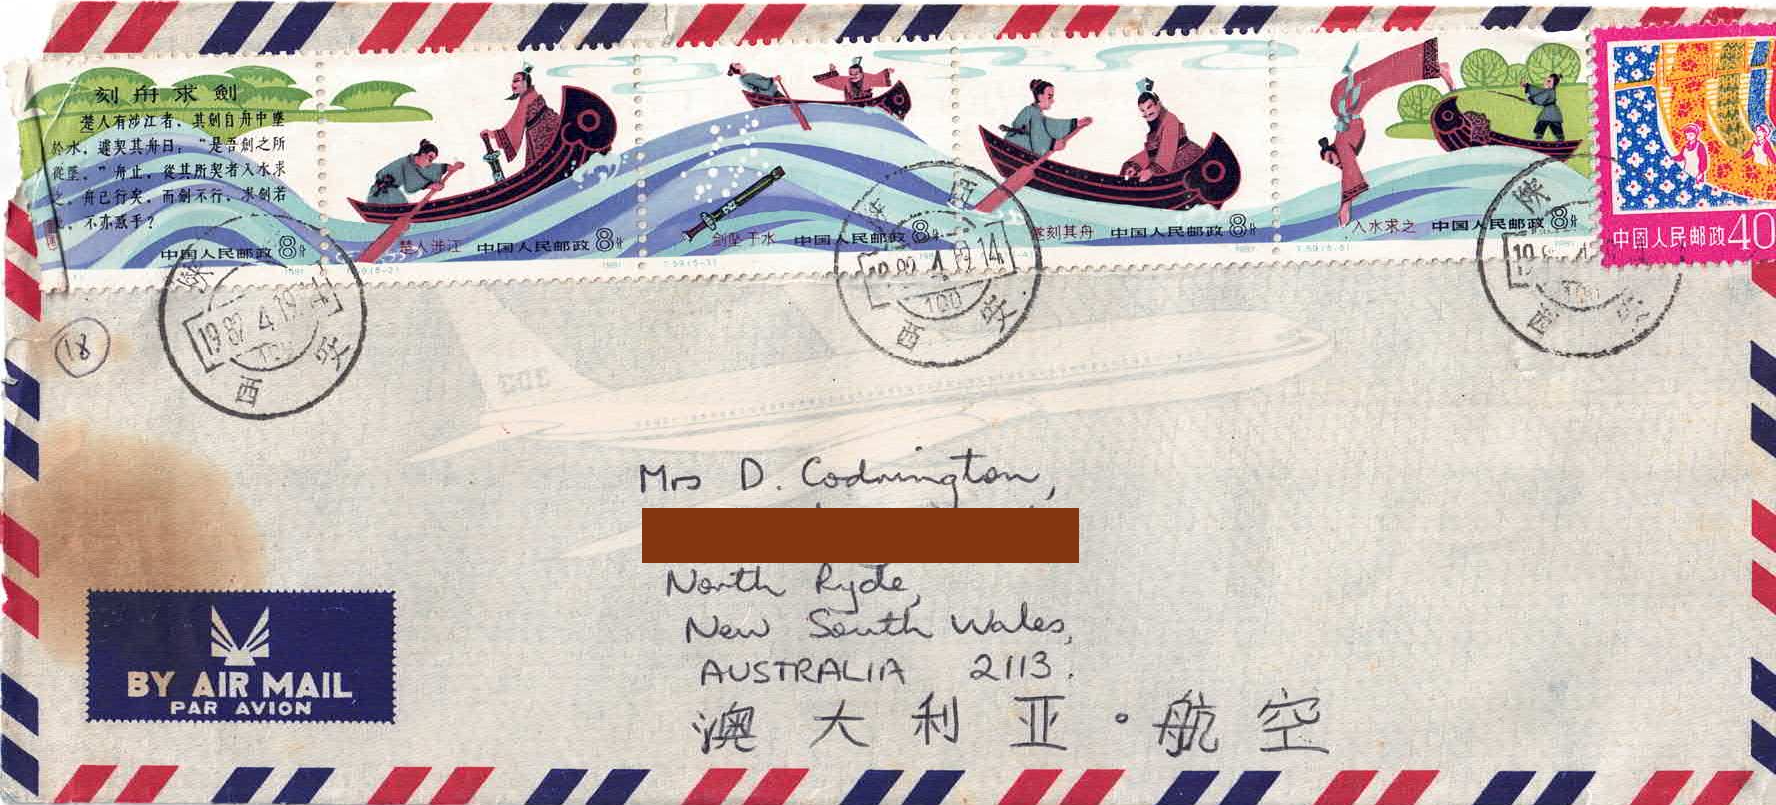 刻舟求劍
楚人有涉江者，其劍自舟中墜
於水，遽契其舟曰："是吾劍之所
從墜。"舟止，從其所契者入水求
之。舟已行矣，而劍不行，求劍若
此，不亦惑乎？
中国人民邮政8分
1981
楚人涉江 中国人民邮政8分
1981
剑坠于水 中国人民邮政8分
T.59.(5-3)
遂刻其舟 中国人民邮政8分
1981
入水求之 中国人民邮政8分
T.59.(5-5)
中国人民邮政40
陕
1982.4.19.14
100
西安
陕西
1982.4.19.14
100
西安
陕
西安
18
303
Mrs D. Codrington,
North Ryde,
New South Wales,
AUSTRALIA 2113.
澳大利亚·航空
BY AIR MAIL
PAR AVION